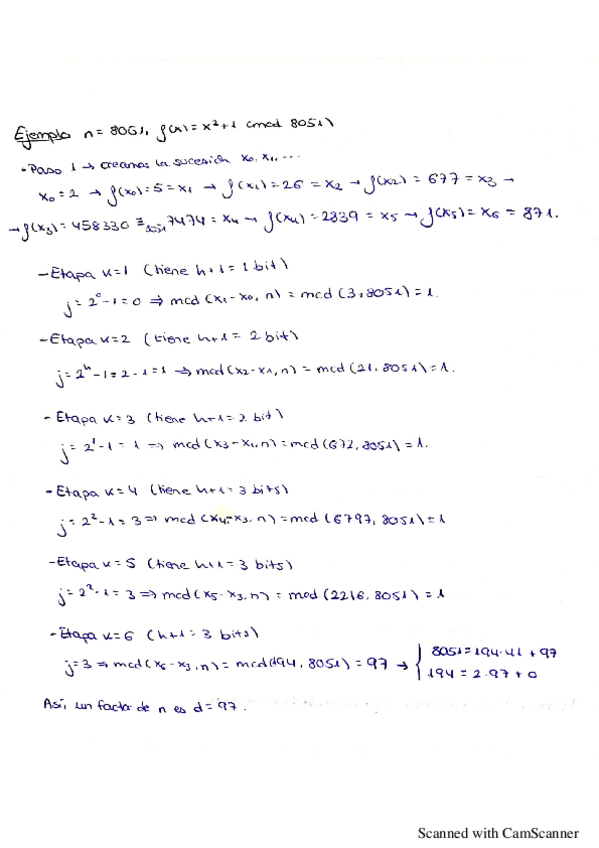 Ejemplo n = 8051, f(x) = x²+1 (mod 8051)
• Paso 1 → creamos la sucesión x₀, x₁, ...
x₀ = 2 → f(x₀) = 5 = x₁ → f(x₁) = 26 = x₂ → f(x₂) = 677 = x₃ →
→ f(x₃) = 458330 ≡₈₀₅₁ 7474 = x₄ → f(x₄) = 2839 = x₅ → f(x₅) = x₆ = 871.
- Etapa k=1 (tiene h+1 = 1 bit)
j = 2⁰-1 = 0 ⇒ mcd (x₁-x₀, n) = mcd (3, 8051) = 1.
- Etapa k=2 (tiene h+1 = 2 bit)
j = 2ʰ-1 = 2-1 = 1 ⇒ mcd (x₂-x₁, n) = mcd (21, 8051) = 1.
- Etapa k=3 (tiene h+1 = 2 bit)
j = 2¹-1 = 1 ⇒ mcd (x₃-x₁, n) = mcd (672, 8051) = 1.
- Etapa k=4 (tiene h+1 = 3 bits)
j = 2²-1 = 3 ⇒ mcd (x₄-x₃, n) = mcd (6797, 8051) = 1
- Etapa k=5 (tiene h+1 = 3 bits)
j = 2²-1 = 3 ⇒ mcd (x₅-x₃, n) = mcd (2216, 8051) = 1
- Etapa k=6 (h+1 = 3 bits)
j = 3 ⇒ mcd (x₆-x₃, n) = mcd (194, 8051) = 97 → { 8051 = 194·41 + 97
194 = 2·97 + 0
Así, un factor de n es d = 97.
Scanned with CamScanner